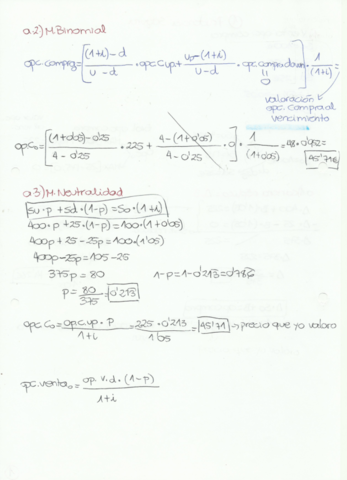 a.2) M. Binomial
opc. compra₀ = [ (1+i)-d / u-d · opc C up + u-(1+i) / u-d · opc compra down ] · 1 / (1+i) =
0
valoración
opc. compra al
vencimiento
opC₀ = [ (1+0'05)-0'25 / 4-0'25 · 225 + 4-(1+0'05) / 4-0'25 · 0 ] · 1 / (1+0'05) = 48 · 0'952 =
45'71€
a.3) M. Neutralidad
Su · p + Sd · (1-p) = So · (1+i)
400·p + 25·(1-p) = 100·(1+0'05)
400p + 25 - 25p = 100·(1'05)
400p - 25p = 105 - 25
375p = 80 1-p = 1-0'213 = 0'786
p = 80 / 375 = 0'213
opc C₀ = opc.up · p / 1+i = 225 · 0'213 / 1'05 = 45'71 → precio que yo valoro
opc. venta₀ = op v.d · (1-p) / 1+i